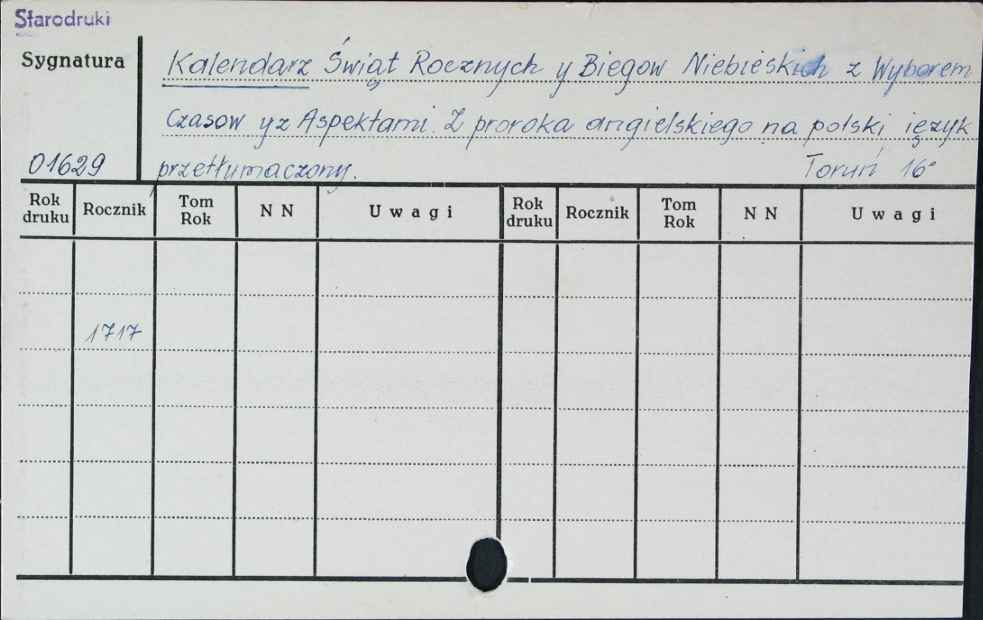 Starodruki
Sygnatura
Kalendarz Świąt Rocznych y Biegow Niebieskich z Wyborem
Czasow yz Aspektami. Z proroka angielskiego na polski ięzyk
01629 przetłumaczony. Toruń 16°
Rok druku Rocznik Tom Rok N N Uwagi Rok druku Rocznik Tom Rok N N Uwagi
1717